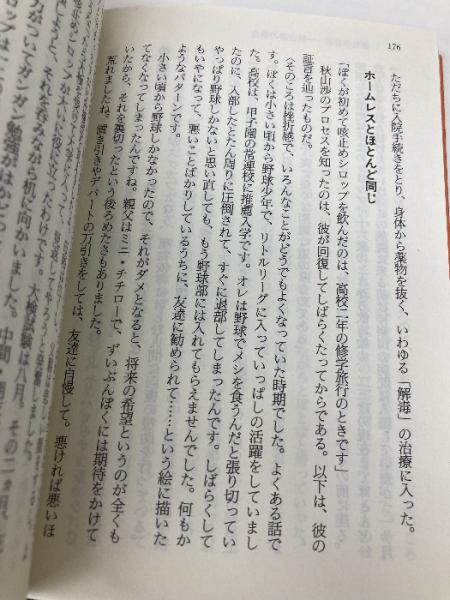 176
ただちに入院手続きをとり、身体から薬物を抜く、いわゆる「解毒」の治療に入った。
ホームレスとほとんど同じ
「ぼくが初めて咳止めシロップを飲んだのは、高校二年の修学旅行のときです」
秋山渉のプロセスを知ったのは、彼が回復してしばらくたってからである。以下は、彼の
証言を辿ったものだ。
〈そのころは挫折感で、いろんなことがどうでもよくなっていた時期でした。よくある話で
す。ぼくは小さい頃から野球少年で、リトルリーグに入っていっぱしの活躍をしていまし
た。高校は、甲子園の常連校に推薦入学です。オレは野球でメシを食うんだと張り切ってい
たのに、入部したとたん周りに圧倒されて、すぐに退部してしまったんです。しばらくして
やっぱり野球しかないと思い直しても、もう野球部には入れてもらえませんでした。何もか
もいやになって、悪いことばかりしているうちに、友達に勧められて……という絵に描いた
ようなパターンです。
小さい頃から野球しかなかったので、それがダメとなると、将来の希望というのが全くも
てなくなってしまったんですね。親父はミニ・チチローで、ずいぶんぼくには期待をかけて
いたから、それを裏切ったという後ろめたさもありました。
荒れましたね。置き引きやデパートの万引きをしては、友達に自慢して。悪ければ悪いほ